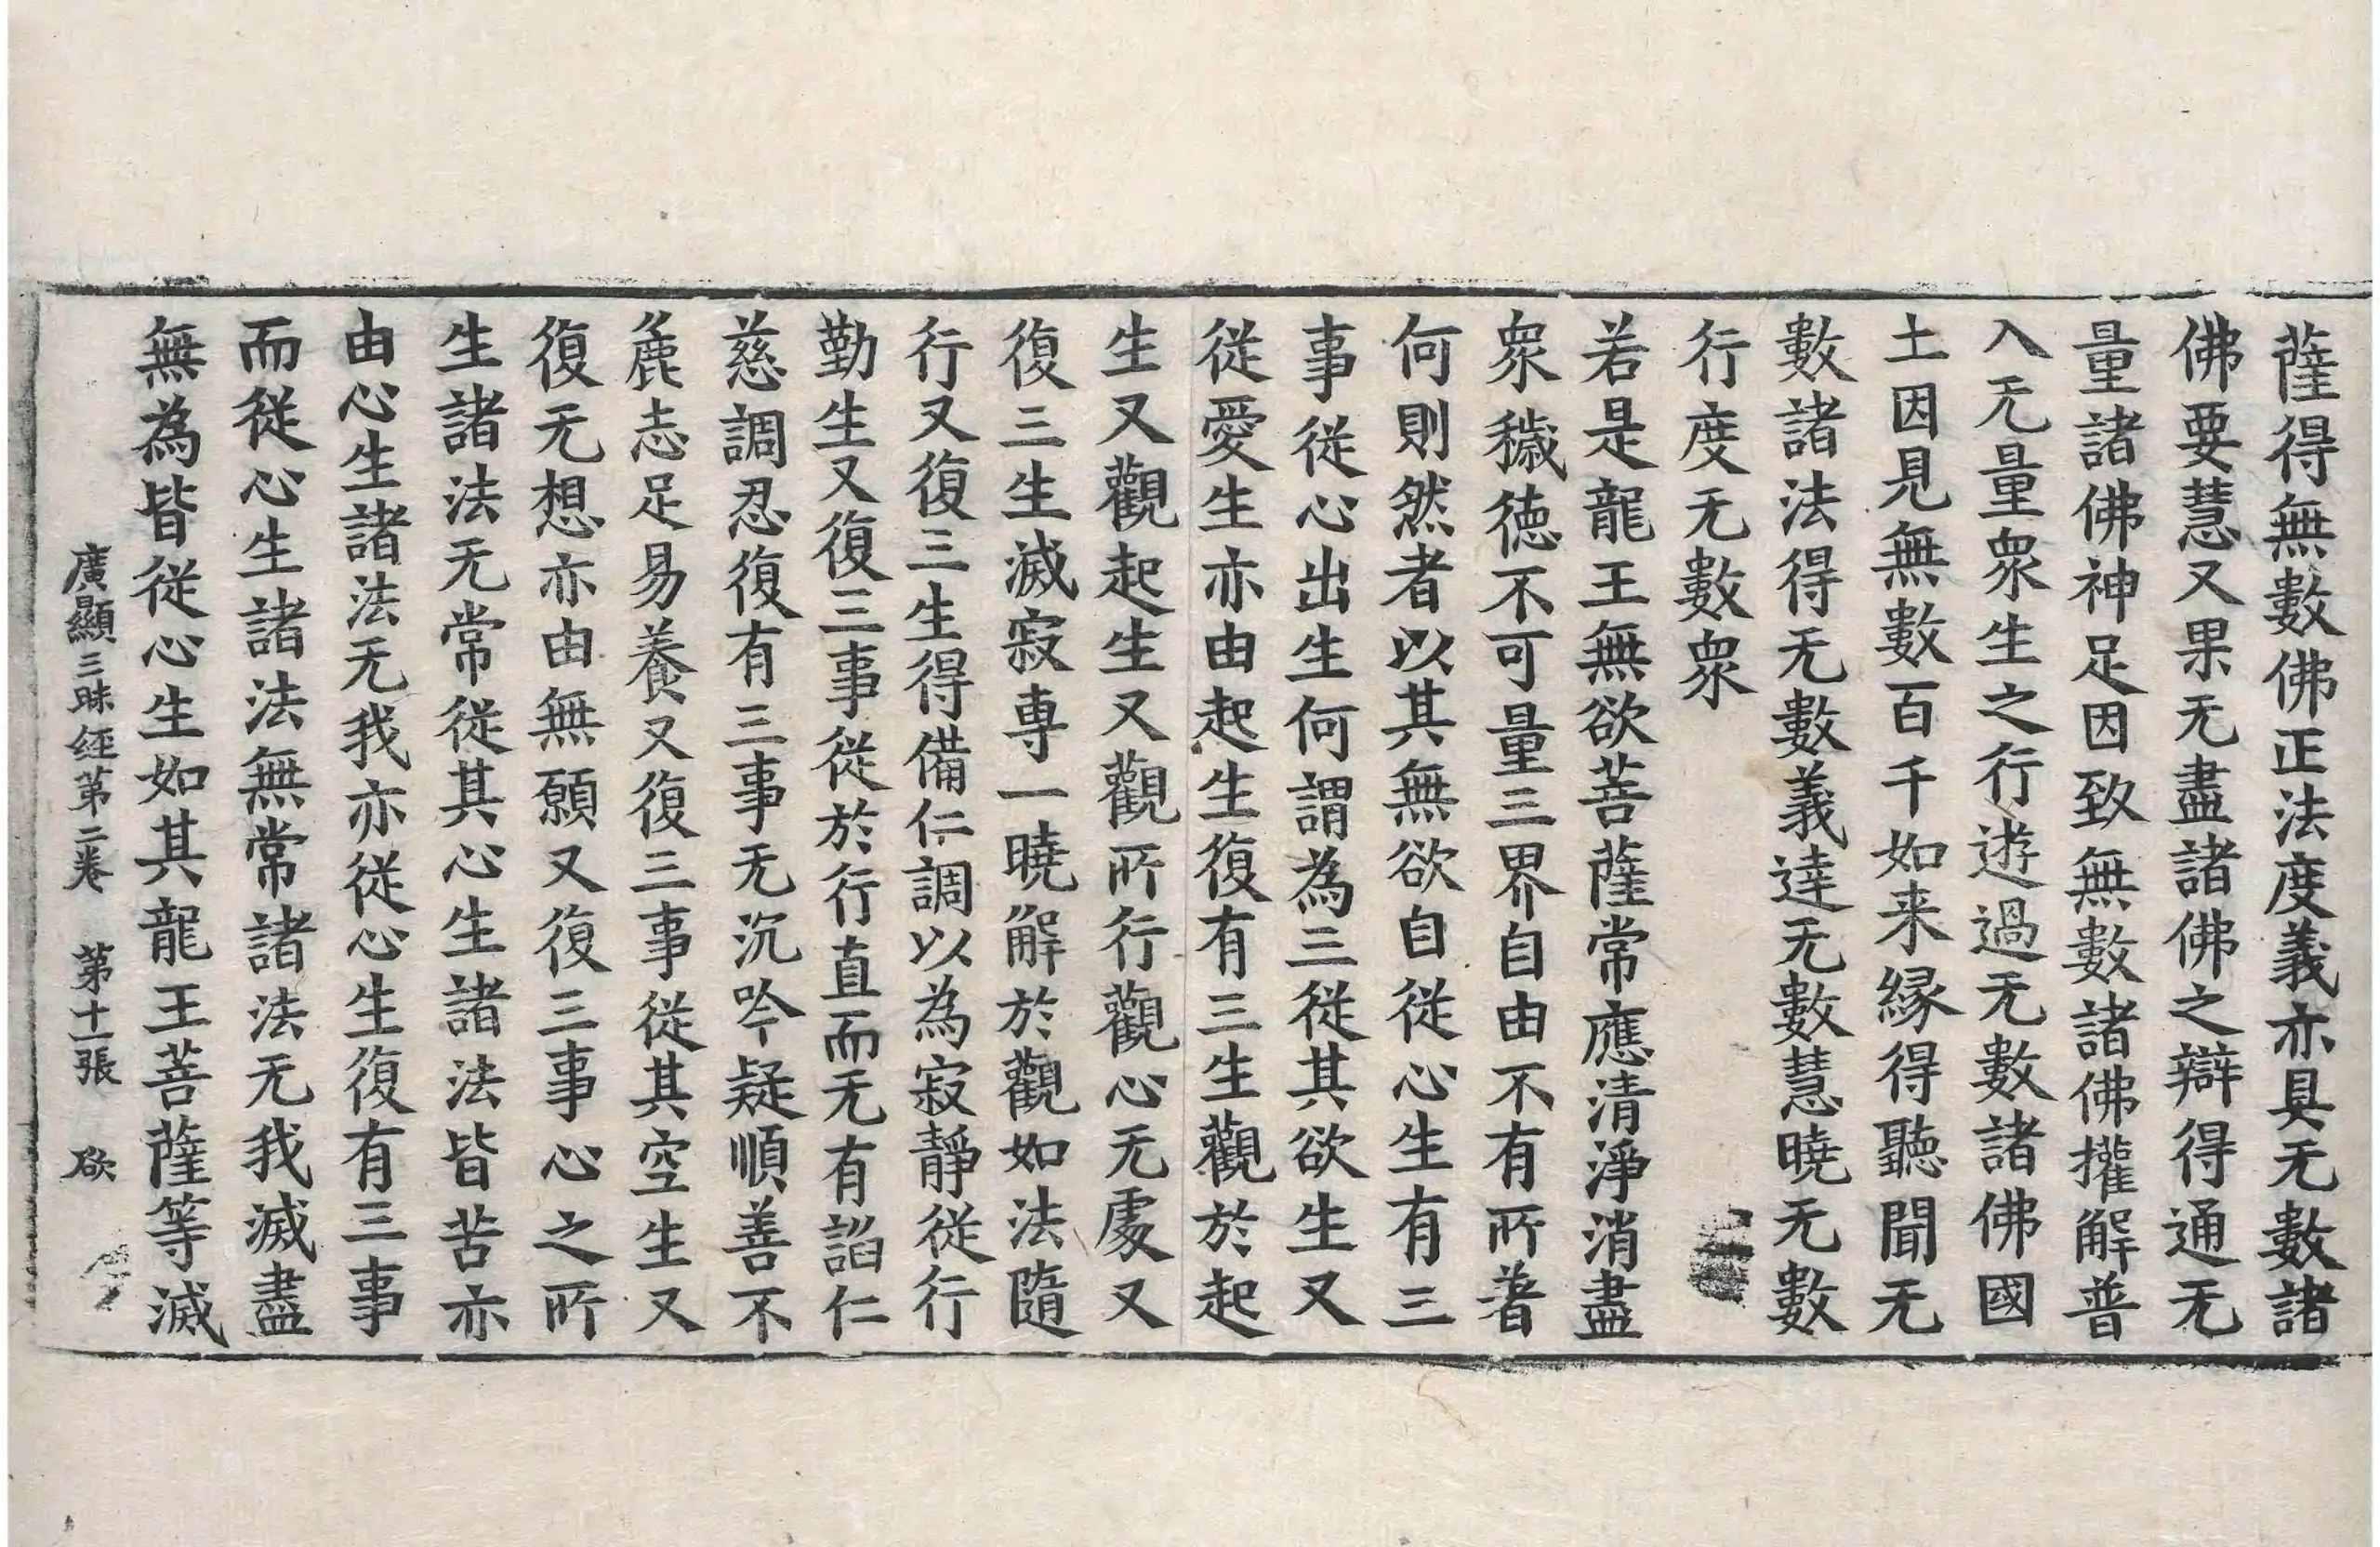 薩得無數佛正法度義亦具无數諸
佛要慧又果无盡諸佛之辯得通无
量諸佛神足因致無數諸佛攉解普
入无量衆生之行遊過无數諸佛國
土因見無數百千如来縁得聽聞无
數諸法得无數義達无數慧曉无數
行度无數衆
若是龍王無欲菩薩常應清淨消盡
衆穢德不可量三界自由不有所著
何則然者以其無欲自從心生有三
事從心出生何謂為三從其欲生又
從愛生亦由起生復有三生觀於起
生又觀起生又觀所行觀心无處又
復三生滅寂專一曉解於觀如法隨
行又復三生得備仁調以為寂靜從行
勤生又復三事從於行直而无有諂仁
慈調忍復有三事无沉吟疑順善不
麁志足易養又復三事從其空生又
復无想亦由無願又復三事心之所
生諸法无常從其心生諸法皆苦亦
由心生諸法无我亦從心生復有三事
而從心生諸法無常諸法无我滅盡
無為皆從心生如其龍王菩薩等滅
廣顯三昧経第二卷 第十一張 欲